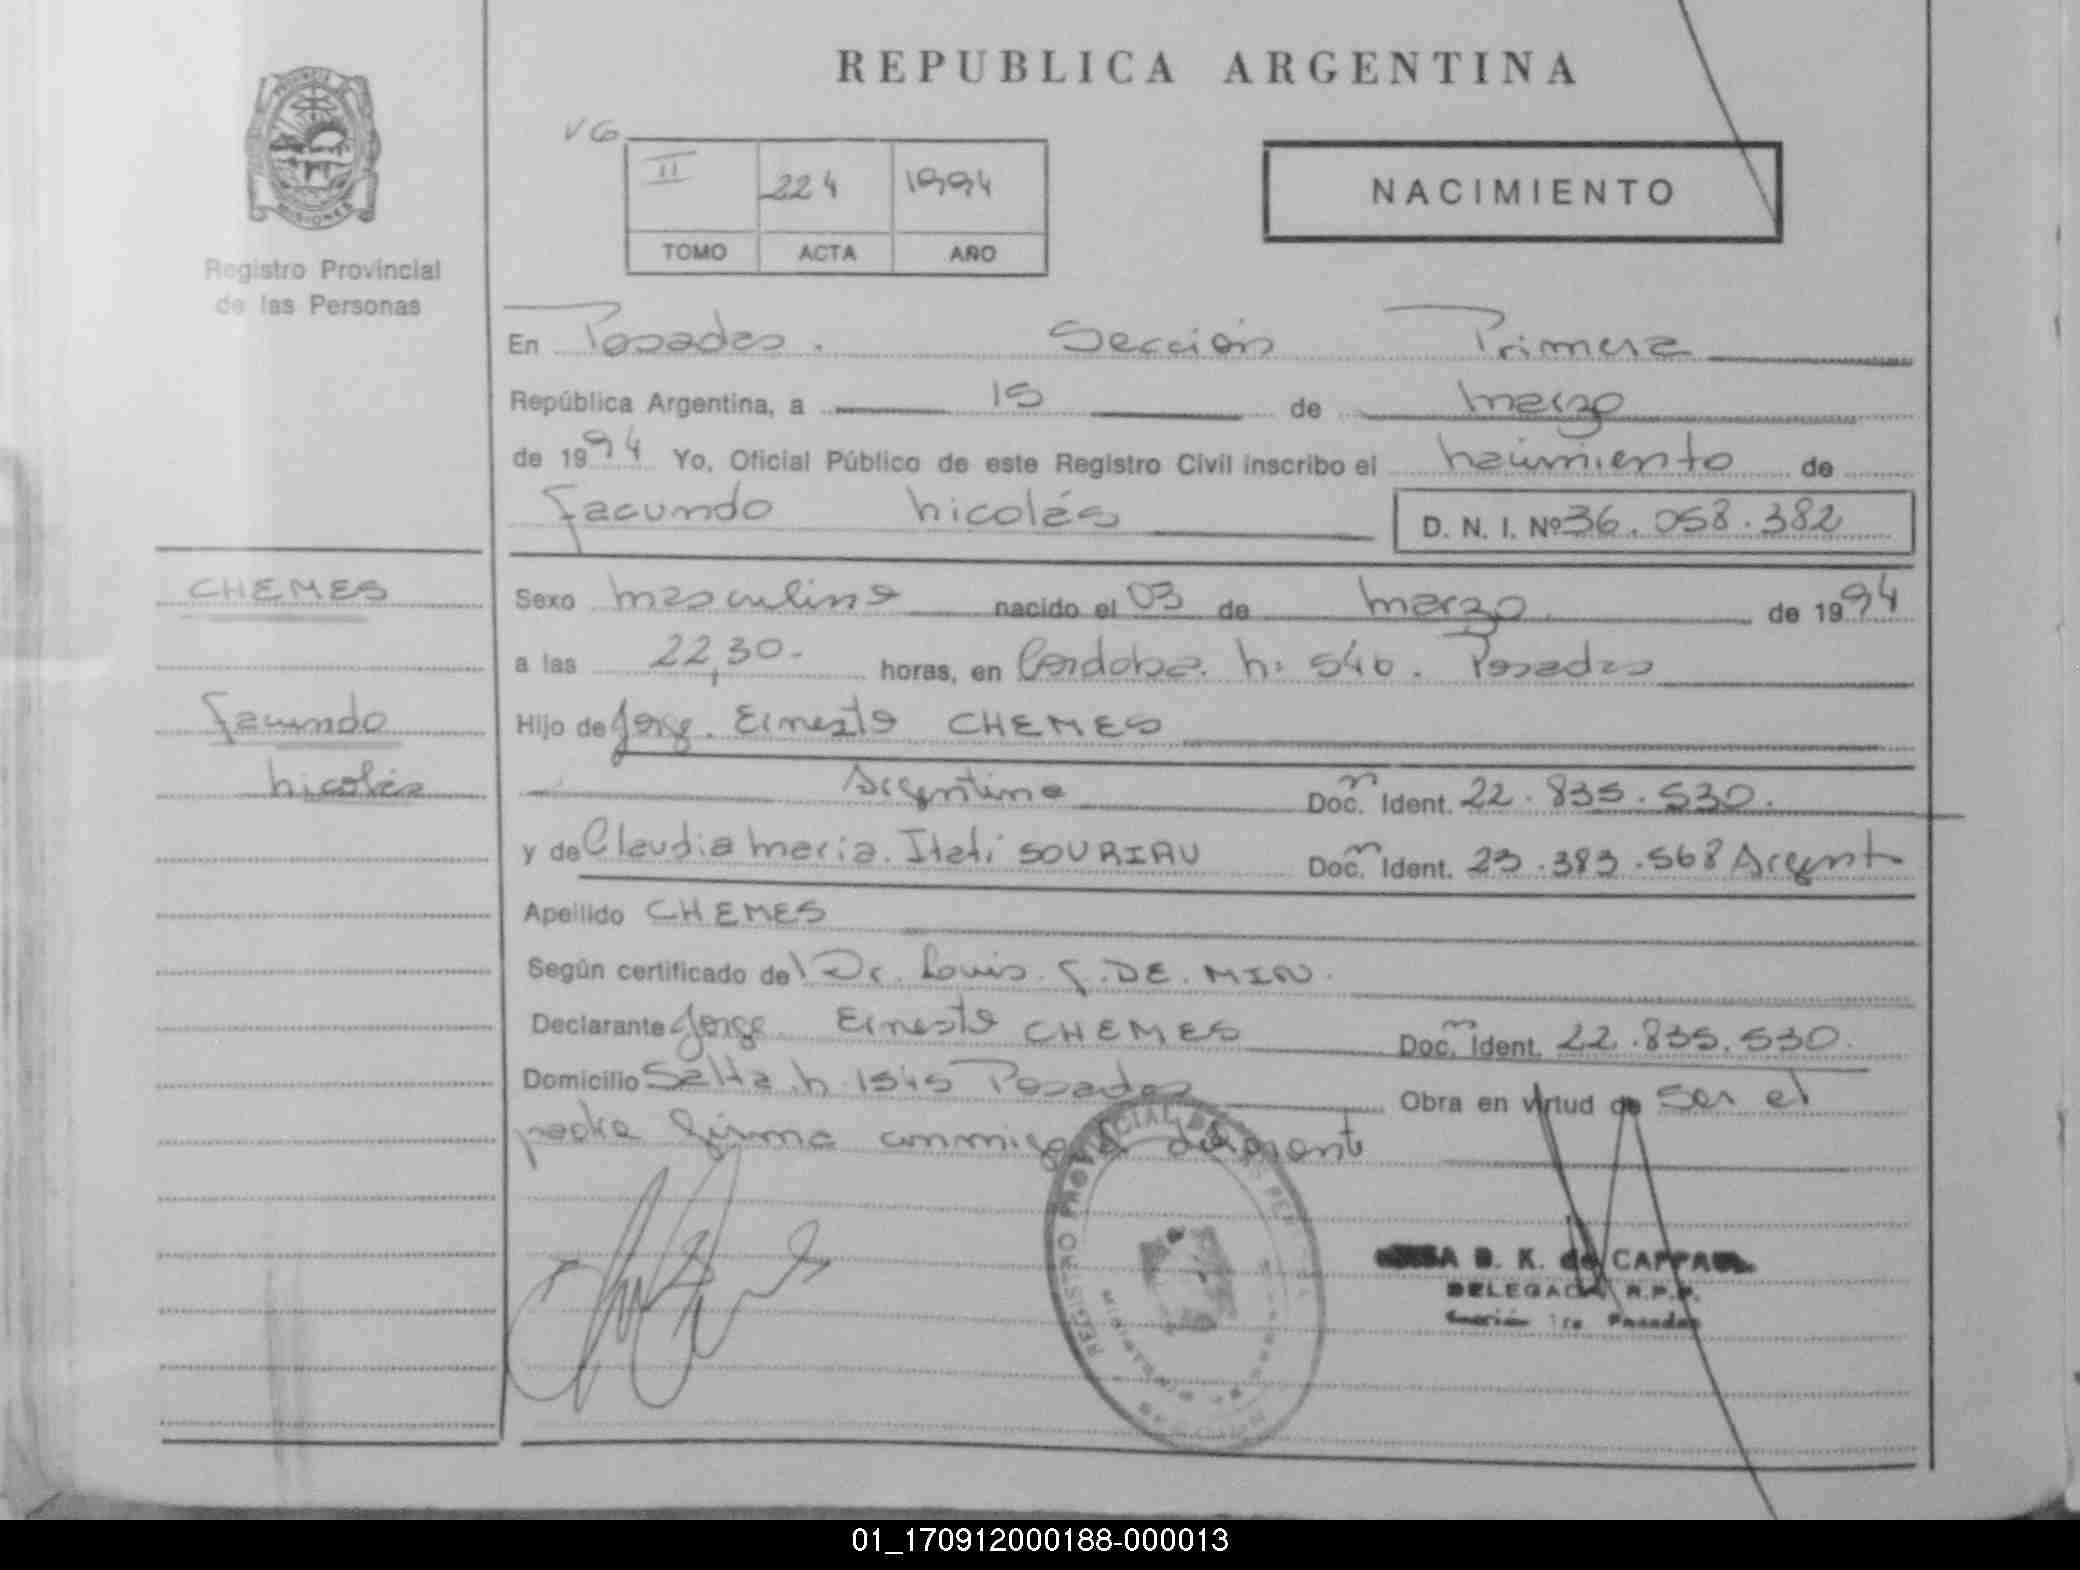 REPUBLICA ARGENTINA
PROVINCIA DE
MISIONES
Registro Provincial
de las Personas
VG
II 224 1994
TOMO ACTA AÑO
NACIMIENTO
En Posadas. Sección Primera
República Argentina, a 15 de marzo
de 1994 Yo, Oficial Público de este Registro Civil inscribo el nacimiento de
Facundo Nicolás D. N. I. Nº 36.058.382
CHEMES
Facundo
Nicolás
Sexo masculino nacido el 03 de marzo de 1994
a las 22,30. horas, en Cordoba. n: 546. Posadas
Hijo de Jorge Ernesto CHEMES
Argentino Doc. Ident. 22.835.530.
y de Claudia Maria Itati SOURIAU Doc. Ident. 23.383.568 Argent
Apellido CHEMES
Según certificado del Dr. Louis DE MIN.
Declarante Jorge Ernesto CHEMES Doc. Ident. 22.835.530.
Domicilio Salta n 1545 Posadas Obra en virtud de ser el
padre firma conmigo
REGISTRO PROVINCIAL DE LAS PERSONAS
B. K. de CAPPA
DELEGADA R.P.P.
Sección 1ra Posadas
01_170912000188-000013